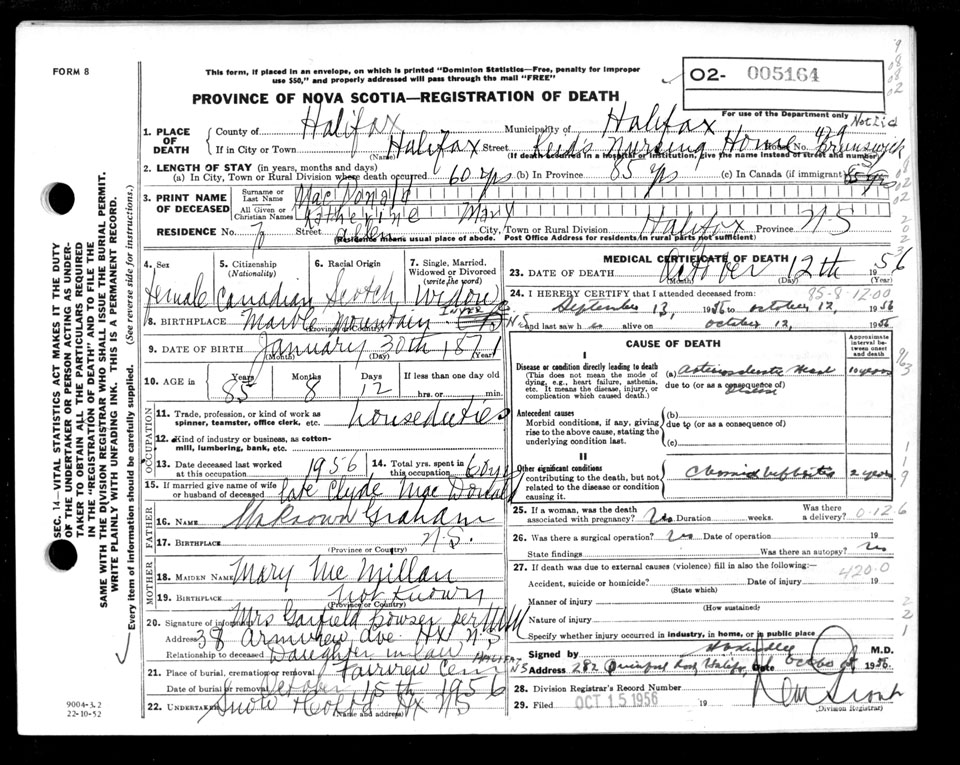 FORM 8
This form, if placed in an envelope, on which is printed "Dominion Statistics—Free, penalty for improper
use $50," and properly addressed will pass through the mail "FREE"
02- 005164
PROVINCE OF NOVA SCOTIA—REGISTRATION OF DEATH
For use of the Department only
1. PLACE OF DEATH
County of Halifax Municipality of Halifax
If in City or Town Halifax Street Reids Nursing Home No. 429 Brunswick
(Name) (If death occurred in a hospital or institution, give the name instead of street and number)
2. LENGTH OF STAY (in years, months and days)
(a) In City, Town or Rural Division where death occurred 60 yrs (b) In Province 85 yrs (c) In Canada (if immigrant) 85 yrs
3. PRINT NAME OF DECEASED
Surname or Last Name Mac Donald
All Given or Christian Names Katherine Mary
RESIDENCE No. 70 Street Allen City, Town or Rural Division Halifax Province N.S
(Residence means usual place of abode. Post Office Address for residents in rural parts not sufficient)
4. Sex female
5. Citizenship (Nationality) Canadian
6. Racial Origin Scotch
7. Single, Married, Widowed or Divorced (write the word) Widow
8. BIRTHPLACE Marble Mountain Inver C.B N S
(Province or Country)
9. DATE OF BIRTH January 30th 1871
(Month) (Day) (Year)
10. AGE in Years 85 Months 8 Days 12 If less than one day old
hrs. or min.
OCCUPATION
11. Trade, profession, or kind of work as spinner, teamster, office clerk, etc. houseduties
12. Kind of industry or business, as cotton-mill, lumbering, bank, etc.
13. Date deceased last worked at this occupation 1956
14. Total yrs. spent in this occupation 60 yrs
15. If married give name of wife or husband of deceased late Clyde Mac Donald
FATHER
16. NAME Unknown Graham
17. BIRTHPLACE N.S.
(Province or Country)
MOTHER
18. MAIDEN NAME Mary Mc Millan
19. BIRTHPLACE not known
(Province or Country)
20. Signature of informant Mrs Garfield Bowser per
Address 38 Armview Ave Hx N S
Relationship to deceased Daughter in law
21. Place of burial, cremation or removal Fairview Cem Halifax N S
Date of burial or removal October 15th 1956
22. UNDERTAKER Snow & Co Ltd Hx N S
(Name and address)
MEDICAL CERTIFICATE OF DEATH
23. DATE OF DEATH October 12th 1956
(Month) (Day)
24. I HEREBY CERTIFY that I attended deceased from
September 13, 1956 to October 12, 1956
and last saw h alive on October 12, 1956
CAUSE OF DEATH
Approximate interval between onset and death
I
Disease or condition directly leading to death
(This does not mean the mode of dying, e.g., heart failure, asthenia, etc. It means the disease, injury, or complication which caused death.)
(a) Arteriosclerotic Heart Disease 10 years
due to (or as a consequence of)
Antecedent causes
Morbid conditions, if any, giving rise to the above cause, stating the underlying condition last.
(b)
due to (or as a consequence of)
(c)
II
Other significant conditions
contributing to the death, but not related to the disease or condition causing it.
Chronic nephritis 2 years
25. If a woman, was the death associated with pregnancy? No Duration weeks. Was there a delivery?
26. Was there a surgical operation? No Date of operation 19
State findings Was there an autopsy? No
27. If death was due to external causes (violence) fill in also the following:—
420.0
Accident, suicide or homicide? Date of injury 19
(State which)
Manner of injury
(How sustained)
Nature of injury
Specify whether injury occurred in industry, in home, or in public place
Signed by M.D.
Address 282 Quinpool Road Halifax, Date 1956.
28. Division Registrar's Record Number
29. Filed OCT 15 1956 19
(Division Registrar)
SEC. 14—VITAL STATISTICS ACT MAKES IT THE DUTY
OF THE UNDERTAKER OR PERSON ACTING AS UNDER-
TAKER TO OBTAIN ALL THE PARTICULARS REQUIRED
IN THE "REGISTRATION OF DEATH" AND TO FILE THE
SAME WITH THE DIVISION REGISTRAR WHO SHALL ISSUE THE BURIAL PERMIT.
WRITE PLAINLY WITH UNFADING INK. THIS IS A PERMANENT RECORD.
Every item of information should be carefully supplied. (See reverse side for instructions.)
9004-3.2
22-10-52